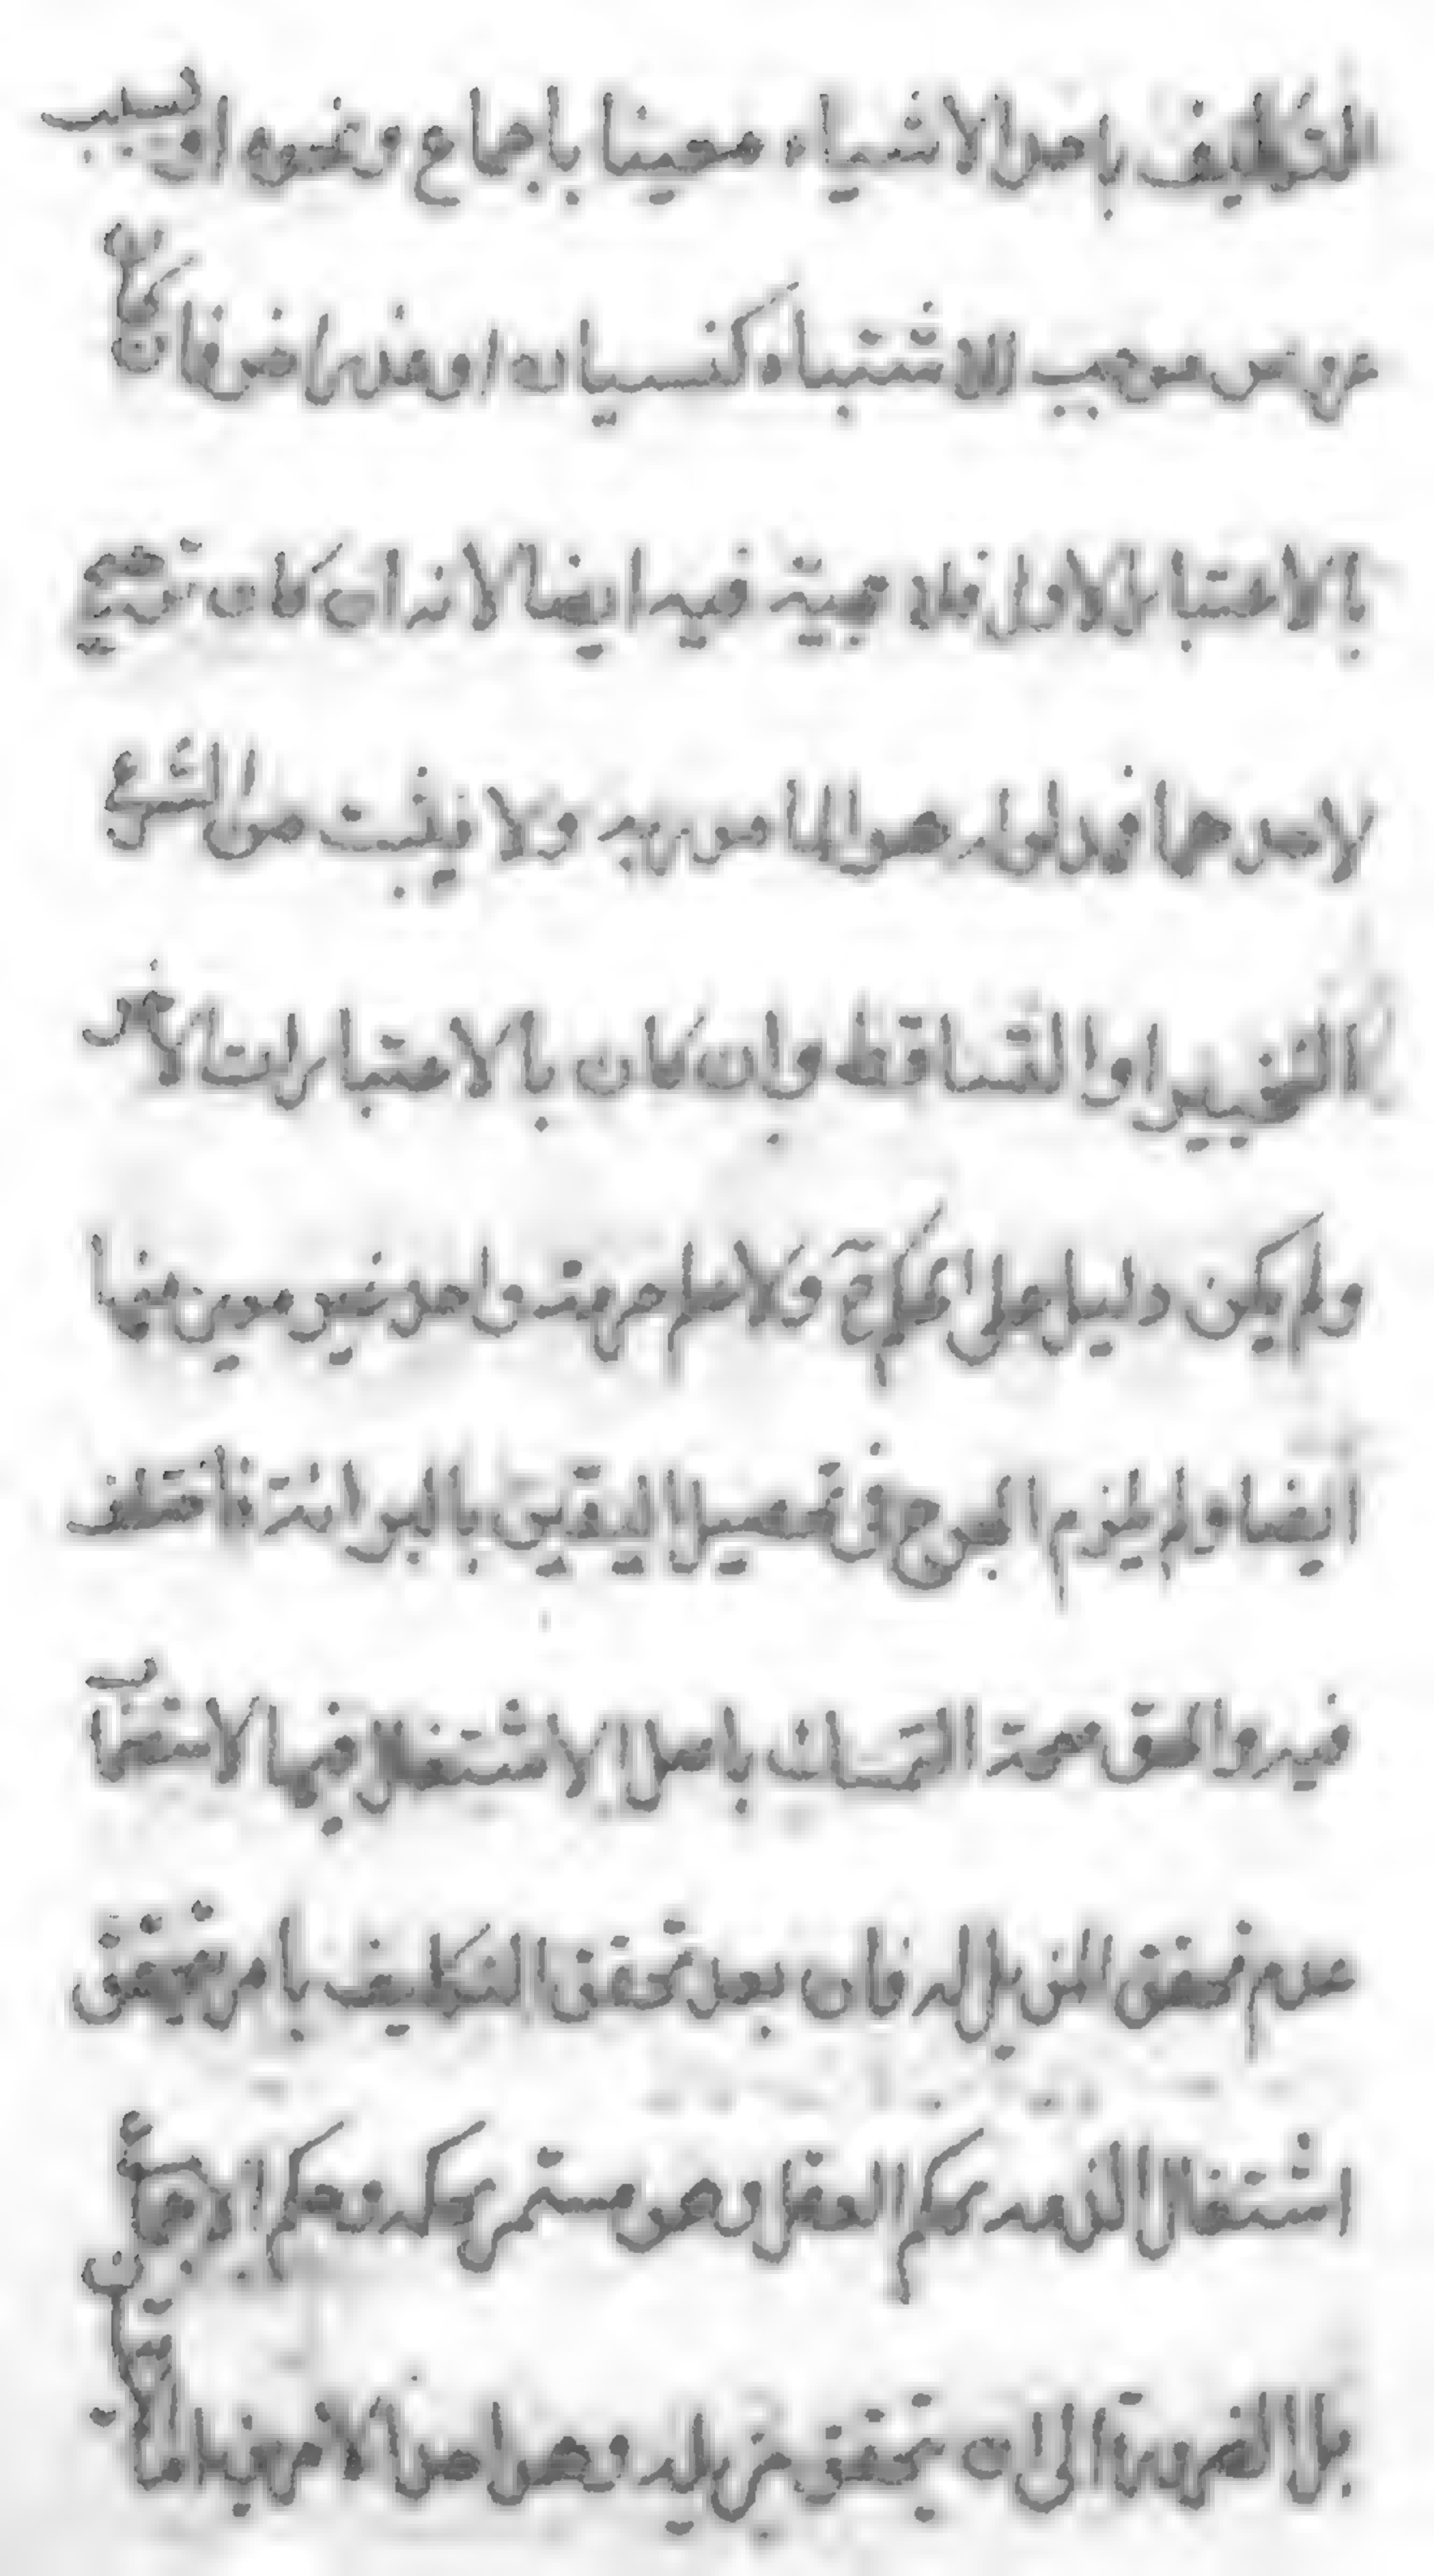 التكليف باحد الاشياء معينا باجماع ونحوه او بسبب
عروض موجب الاشتباه كنسيان او عذر اخر فان كان
بالاعتبار الاول فلا حجية فيه ايضا لانه ان كان ترجيح
لاحدهما فمدلوله هو المامور به ولا يثبت من الشرع
التخيير او التساقط وان كان بالاعتبارات الاخر
ولم يكن دليل على الحكم ح ولا علم حرمة واحد غير معين منها
ايضا ولم يلزم الحرج في تحصيل اليقين بالبرائة فاختلف
فيه والحق صحة التمسك باصل الاشتغال فيها لاستصحاب
عدم تحقق المزيل له فان بعد تحقق التكليف بامر يتحقق
اشتغال الذمه بحكم العقل وهو مستمر بحكمه وحكم الاجماع
بل الضرورة الى ان يتحقق مزيله وهو احد الامرين اما الاتيان